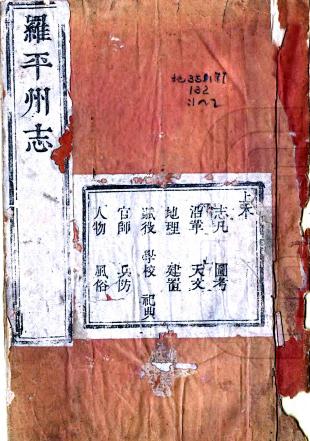 羅平州志
上本
志凡 圖考
沿革 天文
地理 建置
賦役 學校 祀典
官師 兵防
人物 風俗
132